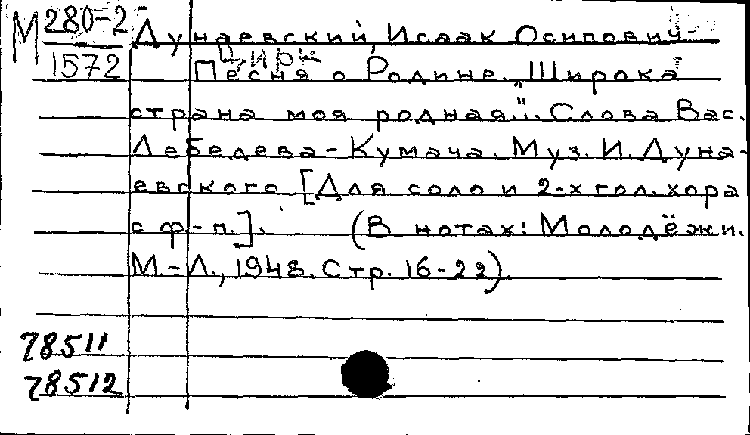 М 280-2
1572
Дунаевский, Исаак Осипович
Цирк
Песня о Родине. „Широка
страна моя родная". Слова Вас.
Лебедева-Кумача. Муз. И. Дуна-
евского [Для соло и 2-х гол. хора
с ф-п.]. (В нотах: Молодёжи.
М.-Л., 1948. Стр. 16-22).
78511
78512